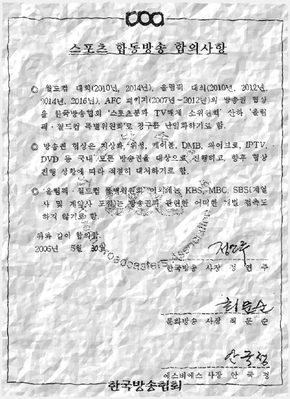 스포츠 합동방송 합의사항
○ 월드컵 대회(2010년, 2014년), 올림픽 대회(2010년, 2012년,
2014년, 2016년), AFC 패키지(2007년~2012년)의 방송권 협상
을 한국방송협회 '스포츠분과 TV특계 소위원회' 산하 '올림
픽·월드컵 특별위원회'로 창구를 단일화하기로 함.
○ 방송권 협상은 지상파, 위성, 케이블, DMB, 와이브로, IPTV,
DVD 등 국내 모든 방송권을 대상으로 진행하고, 향후 협상
진행 상황에 따라 재정의 대처하기로 함.
○ '올림픽·월드컵 특별위원회' 이외에는 KBS, MBC, SBS(계열
사 및 계열사 포함)는 방송권과 관련한 어떠한 개별 접촉도
하지 않기로 함.
위와 같이 합의함.
2006년 5월 30일
한국방송 사장 정 연 주
문화방송 사장 최 문 순
에스비에스 사장 안 국 정
한국방송협회